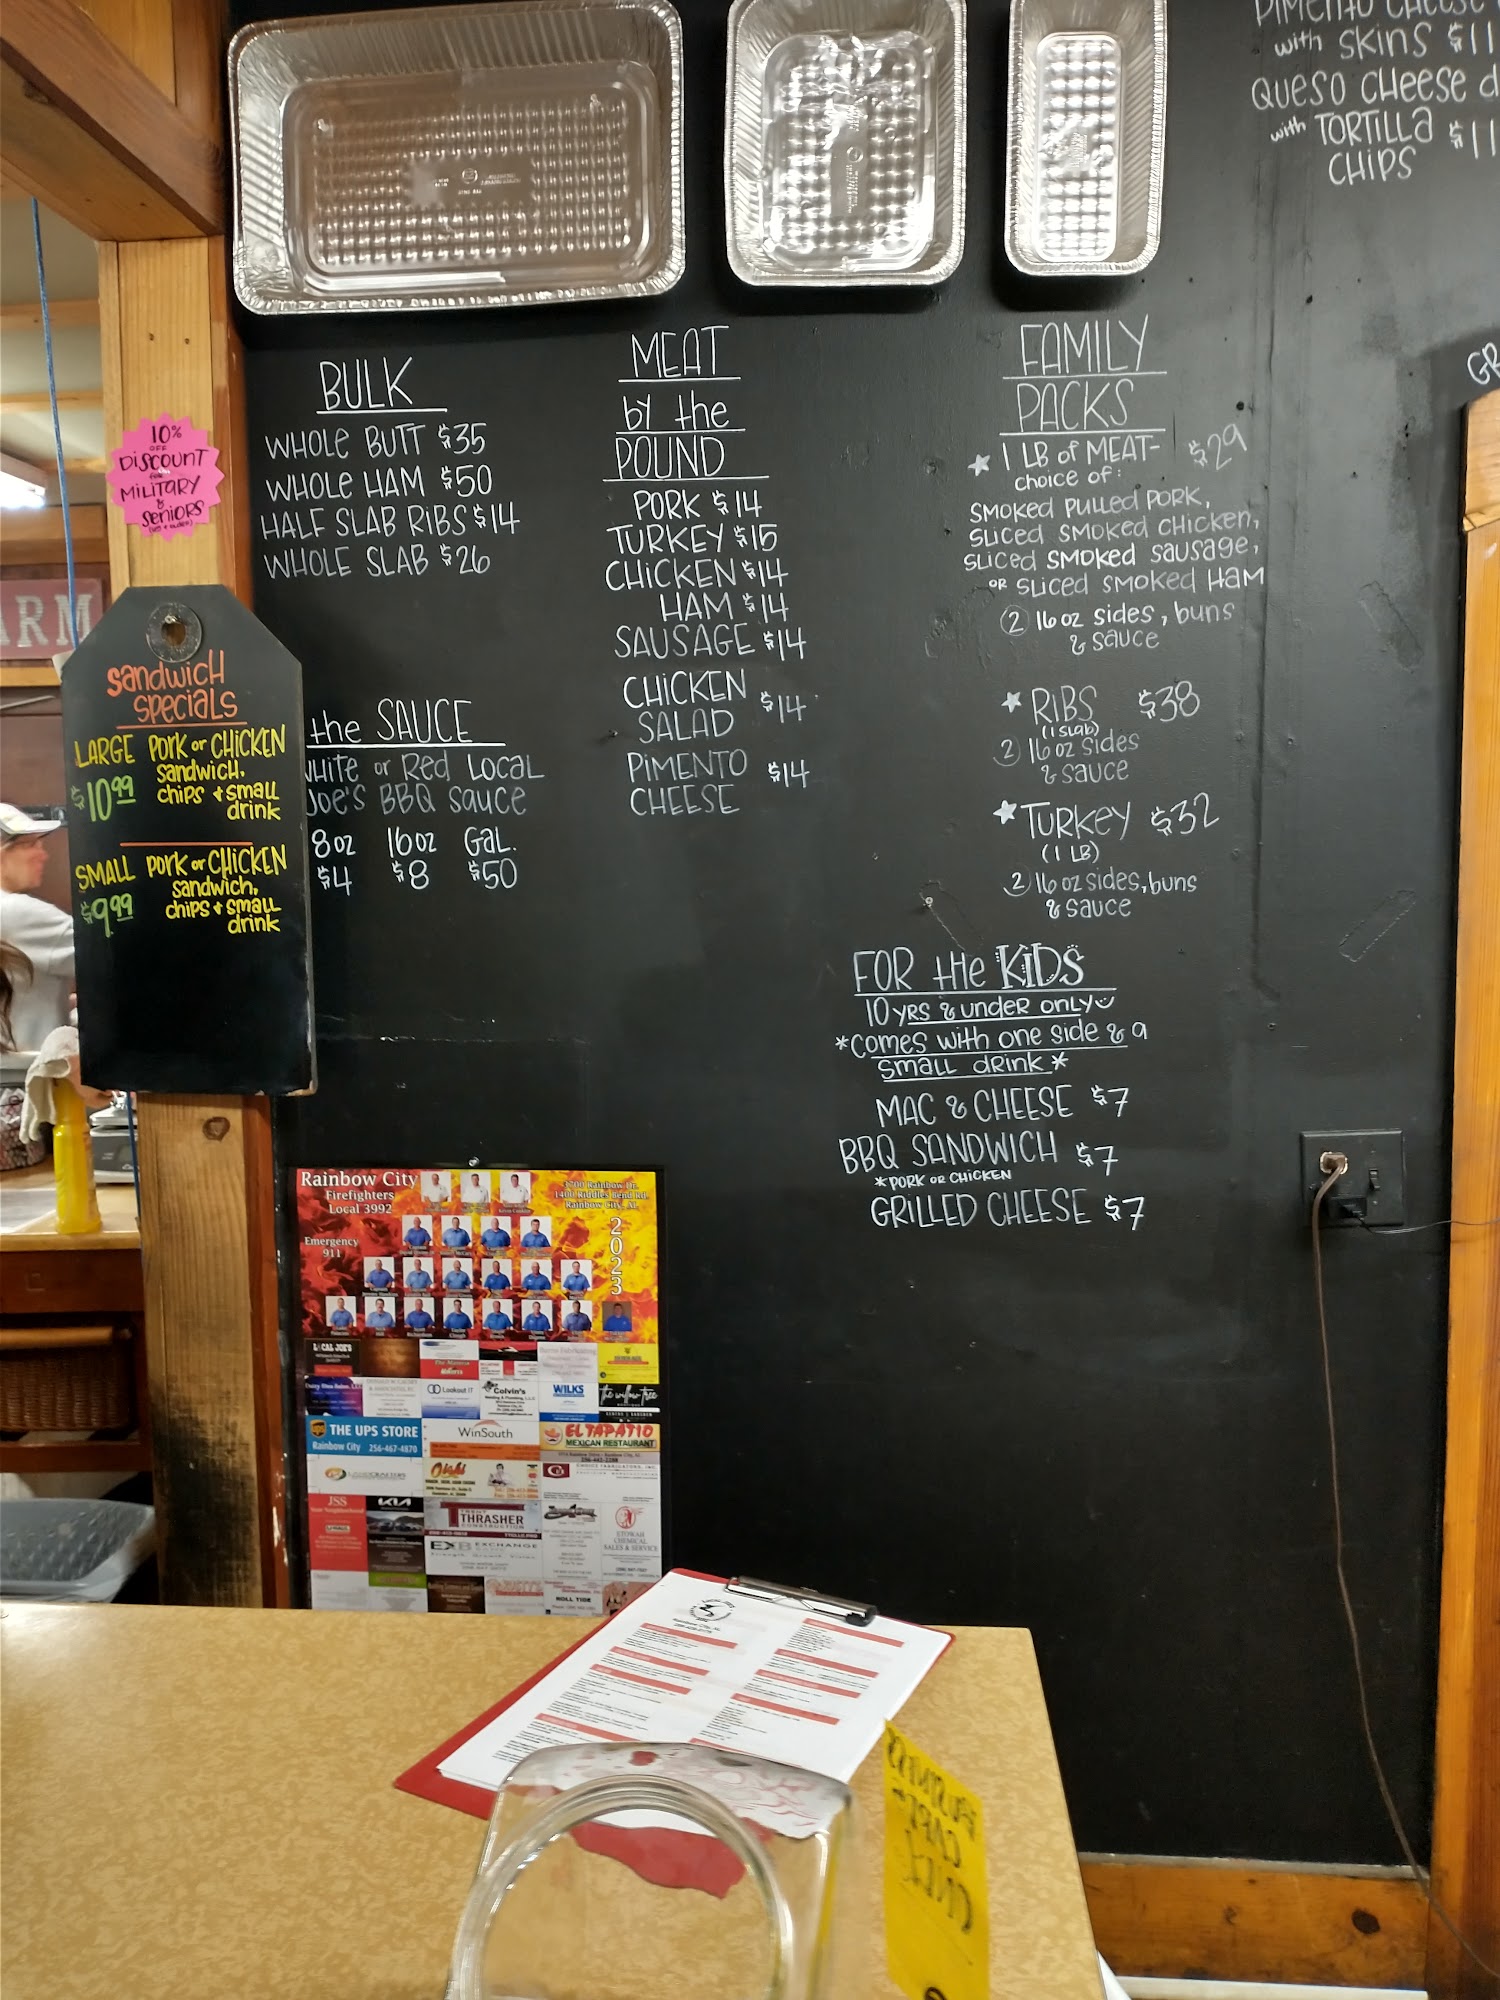 PIMENTO CHEESE
with SKINS $11
QUESO CHEESE
with TORTILLA $11
CHIPS
BULK
WHOLE BUTT $35
WHOLE HAM $50
HALF SLAB RIBS $14
WHOLE SLAB $26
the SAUCE
White or Red Local
Joe's BBQ Sauce
8oz 16oz Gal.
$4 $8 $50
MEAT
by the
POUND
PORK $14
TURKEY $15
CHICKEN $14
HAM $14
SAUSAGE $14
CHICKEN
SALAD $14
PIMENTO
CHEESE $14
FAMILY
PACKS
1 LB of MEAT- $29
choice of:
SMOKED PULLED PORK,
SLICED SMOKED CHICKEN,
SLICED SMOKED SAUSAGE,
OR SLICED SMOKED HAM
2 16 oz sides, buns
& sauce
RIBS $38
(1 slab)
2 16 oz sides
& sauce
TURKEY $32
(1 LB)
2 16 oz sides, buns
& sauce
FOR the KIDS
10 yrs & under only
*comes with one side & a
small drink*
MAC & CHEESE $7
BBQ SANDWICH $7
*PORK OR CHICKEN
GRILLED CHEESE $7
10%
OFF
DISCOUNT
for
MILITARY
&
SENIORS
ARM
Sandwich
Specials
LARGE PORK or CHICKEN
$10.99 sandwich,
chips + small
drink
SMALL PORK or CHICKEN
$9.99 sandwich,
chips + small
drink
Rainbow City
Firefighters
Local 3992
Emergency
911
1700 Rainbow Dr.
1400 Riddles Bend Rd.
Rainbow City, AL
2023
LOCAL JOE'S
Lookout IT
Colvin's
WILKS
the willow tree
THE UPS STORE
Rainbow City 256-467-4870
WinSouth
EL TAPATIO
MEXICAN RESTAURANT
Oishi
JSS
KIA
THRASHER
CONSTRUCTION
EXB EXCHANGE
ETOWAH
CHEMICAL
SALES & SERVICE
ROLL TIDE
Rainbow City, AL